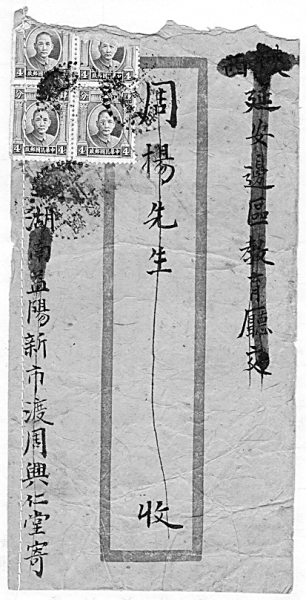 陝西延安邊區教育廳交
周楊先生 收
湖南益陽新市渡周興仁堂寄